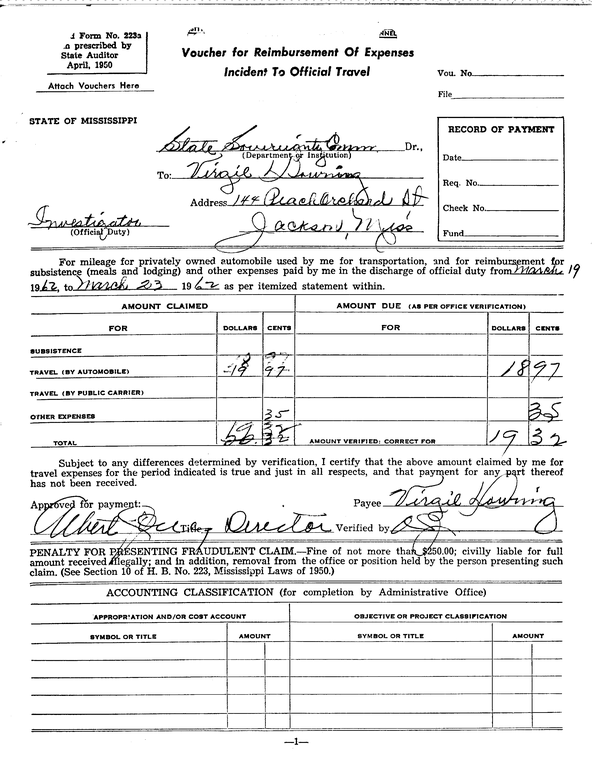 Form No. 223a
prescribed by
State Auditor
April, 1950
Attach Vouchers Here
Voucher for Reimbursement Of Expenses
Incident To Official Travel
Vou. No.
File
STATE OF MISSISSIPPI
State Sovereignty Comm Dr.,
(Department or Institution)
To: Virgil Downing
Address 144 Peach Orchard St
Jackson, Miss
Investigator
(Official Duty)
RECORD OF PAYMENT
Date
Req. No.
Check No.
Fund
For mileage for privately owned automobile used by me for transportation, and for reimbursement for
subsistence (meals and lodging) and other expenses paid by me in the discharge of official duty from March 19
1962, to March 23 1962 as per itemized statement within.
AMOUNT CLAIMED AMOUNT DUE (AS PER OFFICE VERIFICATION)
FOR DOLLARS CENTS FOR DOLLARS CENTS
SUBSISTENCE
TRAVEL (BY AUTOMOBILE) 18 97 18 97
TRAVEL (BY PUBLIC CARRIER)
OTHER EXPENSES 35 35
TOTAL 19 32 AMOUNT VERIFIED: CORRECT FOR 19 32
Subject to any differences determined by verification, I certify that the above amount claimed by me for
travel expenses for the period indicated is true and just in all respects, and that payment for any part thereof
has not been received.
Approved for payment: Payee Virgil Downing
Albert Title Director Verified by
PENALTY FOR PRESENTING FRAUDULENT CLAIM.—Fine of not more than $250.00; civilly liable for full
amount received illegally; and in addition, removal from the office or position held by the person presenting such
claim. (See Section 10 of H. B. No. 223, Mississippi Laws of 1950.)
ACCOUNTING CLASSIFICATION (for completion by Administrative Office)
APPROPRIATION AND/OR COST ACCOUNT OBJECTIVE OR PROJECT CLASSIFICATION
SYMBOL OR TITLE AMOUNT SYMBOL OR TITLE AMOUNT
—1—